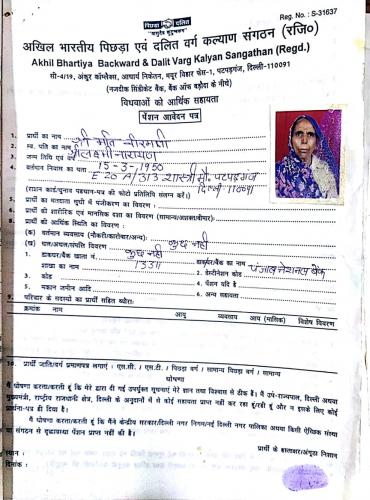 पिछड़ा दलित
Reg. No. : S-31637
अखिल भारतीय पिछड़ा एवं दलित वर्ग कल्याण संगठन (रजि०)
Akhil Bhartiya Backward & Dalit Varg Kalyan Sangathan (Regd.)
सी-4/19, अंकुर कॉम्प्लैक्स, आचार्य निकेतन, मयूर विहार फेस-1, पटपड़गंज, दिल्ली-110091
(नजदीक सिंडीकेट बैंक, बैंक ऑफ बड़ौदा के नीचे)
विधवाओं को आर्थिक सहायता
पेंशन आवेदन पत्र
1. प्रार्थी का नाम श्री मति वीरमती
2. स्व. पति का नाम श्री लक्ष्मी नारायण
3. जन्म तिथि एवं वर्ष 15-3-1950
4. वर्तमान निवास का पता E-20 A/313 शास्त्री मौ. पटपड़गंज
दिल्ली 110091
(राशन कार्ड/चुनाव पहचान-पत्र की फोटो प्रतिलिपि संलग्न करें।)
5. प्रार्थी का मतदाता सूची में पंजीकरण का विवरण :
6. प्रार्थी की शारीरिक एवं मानसिक दशा का विवरण (सामान्य/अशक्त/बीमार):
7. प्रार्थी की आर्थिक स्थिति का विवरण :
(क) वर्तमान व्यवसाय (नौकरी/कारोबार/अन्य): कुछ नहीं
(ख) चल/अचल/संपत्ति विवरण कुछ नहीं
1. डाकघर/बैंक खाता नं. डाकघर/बैंक का नाम पंजाब नेशनल बैंक
शाखा का नाम 2. डेस्टीनेशन कोड
3. कोड 4. पेंशन यदि है
5. मकान जमीन आदि 6. अन्य सहायता
9. परिवार के सदस्यों का प्रार्थी सहित ब्यौरा:
क्रमांक नाम आयु व्यवसाय आय (मासिक) विशेष विवरण
10. प्रार्थी जाति/वर्ग प्रमाणपत्र लगाएं : एस.सी. / एस.टी. / पिछड़ा वर्ग / सामान्य पिछड़ा वर्ग / सामान्य
घोषणा
मैं घोषणा करता/करती हूं कि मेरे द्वारा दी गई उपर्युक्त सूचनाएं मेरे ज्ञान तथा विश्वास से ठीक है। मैं उप-राज्यपाल, दिल्ली अथवा
मुख्यमंत्री, राष्ट्रीय राजधानी क्षेत्र, दिल्ली के अनुदानों में से कोई सहायता प्राप्त नहीं कर रहा हूं/रही हूं और न इसके लिए कोई
प्रार्थना-पत्र ही दिया है।
मैं घोषणा करता/करती हूं कि मैंने केन्द्रीय सरकार/दिल्ली नगर निगम/नई दिल्ली नगर पालिका अथवा किसी ऐच्छिक संस्था
या संगठन से वृद्धावस्था पेंशन प्राप्त नहीं की है।
प्रार्थी के हस्ताक्षर/अंगूठा निशान
स्थान :
दिनांक :